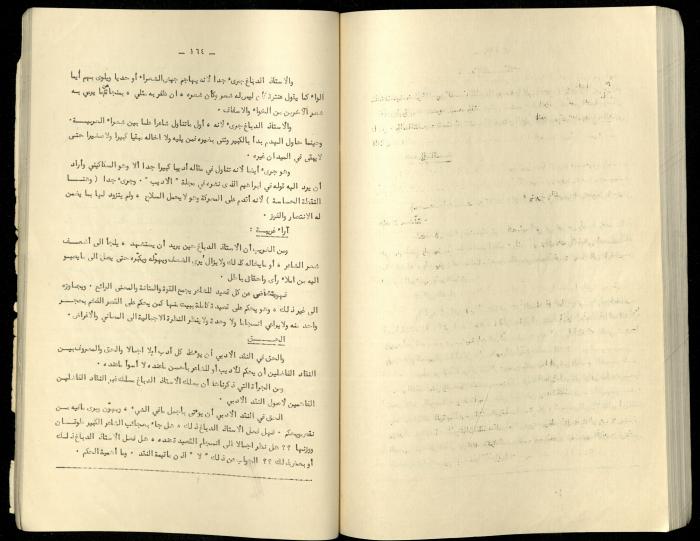 — ١٦٤ —
والاستاذ الدباغ جرىء جدا لأنه يهاجم جهد الشعراء أو حديا ويلوى بهم أيما
الواء كما يقول عنترة كأن ليس له شعر وكأن شعره
شعر الآخرين من الخواء والاسفاف .
والاستاذ الدباغ جرىء لأنه ، أول ماتناول شاعرا علما بين شعراء العربية .
وحينما حاول الهدم بدأ بالكبير وثنى بغيره ممن يليه ولا اخاله مبقيا كبيرا ولا صغيرا حتى
لا يبقى في الميدان غيره .
وهو جرىء أيضا لأنه تناول في مقاله أديبا كبيرا جدا ألا وهو السكاكيني وأراد
أن يرد اليه قوله في ابراهيم الذى نشره في مجلة " الأديب " . وجرىء جدا ( وهنا
النقطة الحساسة ) لأنه أقدم على المعركة وهو لا يحمل السلاح ، ولم يتزود لها بما يضمن
له الانتصار والفوز .
آراء غريبة :
ومن الغريب أن الاستاذ الدباغ حين يريد أن يستشهد ، يلجأ الى أضعف
شعر الشاعر ، أو مايخاله كذلك ولا يزال يُرى الضعف ويهوله ويكبره حتى يصل الى مايصبو
اليه من املاء رأى واحقاق باطل .
عن كل قصيد للشاعر يجمع القوة والمتانة والمعنى الرائع . ويجاوزه
الى غير ذلك ، وهو يحكم على قصيدة كاملة ببيت منها كمن يحكم على القصر الفخم بحجر
واحد منه ولا يراعي انسجاما ولا وحدة ولا ينظر النظرة الاجمالية الى المعاني والأغراض .
الحـــــق
والحق في النقد الأدبي أن يؤخذ كل أديب أولا اجمالا والحق والمعروف بين
النقاد الفاضلين أن يحكم للأديب أو للشاعر بأحسن ماعنده لا أسوأ ماعنده .
ومن الجرأة التي ذكرناها أن يسلك الاستاذ الدباغ مسلك غير النقاد الفاضلين
الفاهمين لأصول النقد الأدبي .
الحق في النقد الأدبي أن يؤتى بأجمل مافي الشىء ، ويبين ويرى مافيه من
فهل فعل الاستاذ الدباغ ذلك ، هل جاء بمحاسن الشاعر الكبير طوقان
ووزنها ؟؟ هل نظر اجمالا الى انسجام القصيد عنده ، هل فعل الاستاذ الدباغ ذلك
أو بعض ذلك ؟؟ الجواب عن ذلك " لا " اذن ماقيمة النقد . وما أهمية الحكم .